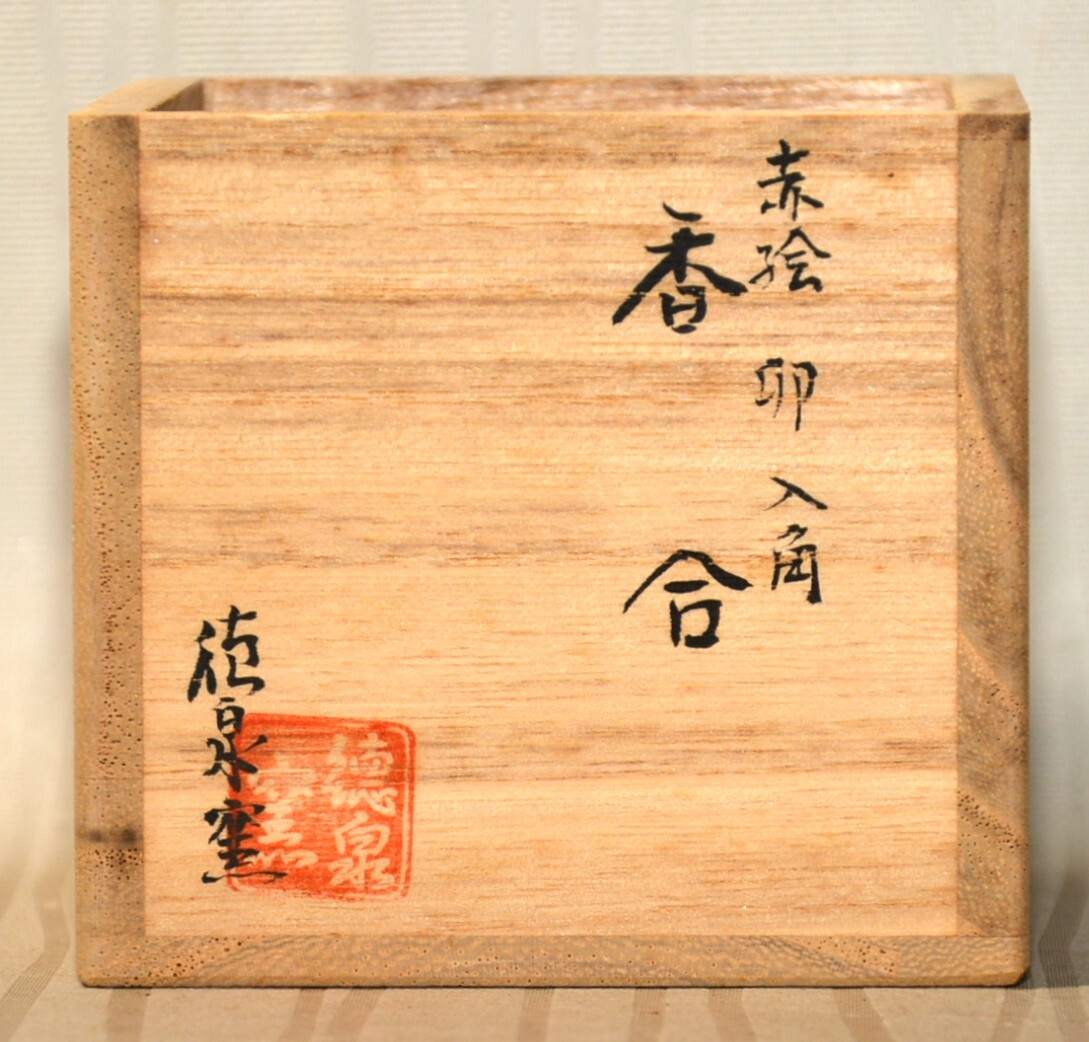 赤絵 卯 入角
香合
徳泉窯
徳泉
窯